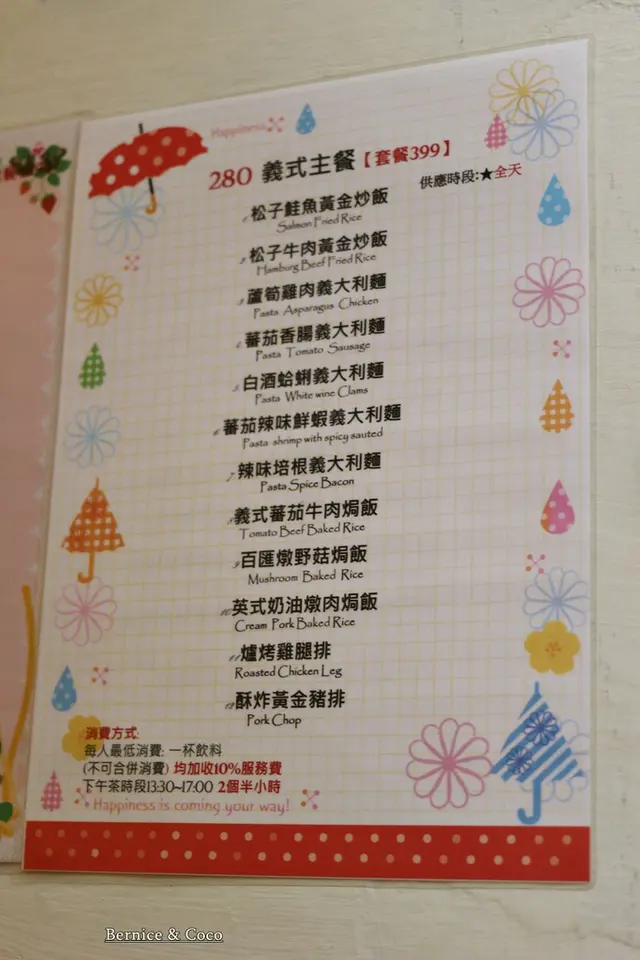 Happiness
280 義式主餐【套餐399】
供應時段:★全天
1.松子鮭魚黃金炒飯
Salmon Fried Rice
2.松子牛肉黃金炒飯
Hamburg Beef Fried Rice
3.蘆筍雞肉義大利麵
Pasta Asparagus Chicken
4.蕃茄香腸義大利麵
Pasta Tomato Sausage
5.白酒蛤蜊義大利麵
Pasta White wine Clams
6.蕃茄辣味鮮蝦義大利麵
Pasta shrimp with spicy sauted
7.辣味培根義大利麵
Pasta Spice Bacon
8.義式蕃茄牛肉焗飯
Tomato Beef Baked Rice
9.百匯燉野菇焗飯
Mushroom Baked Rice
10.英式奶油燉肉焗飯
Cream Pork Baked Rice
11.爐烤雞腿排
Roasted Chicken Leg
12.酥炸黃金豬排
Pork Chop
消費方式:
每人最低消費: 一杯飲料
(不可合併消費) 均加收10%服務費
下午茶時段13:30~17:00 2個半小時
Happiness is coming your way!
Bernice & Coco